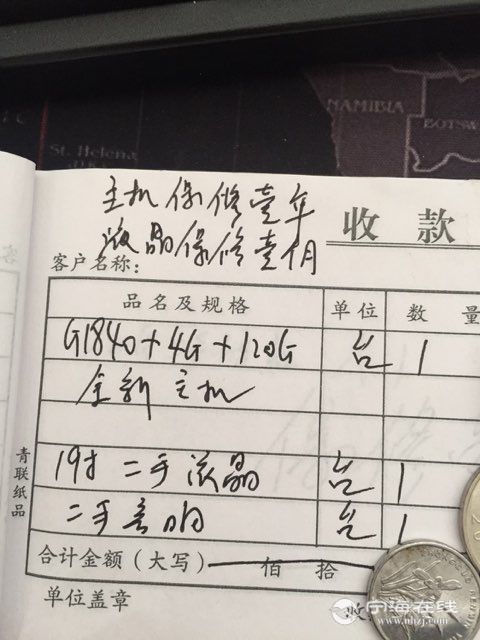 NAMIBIA
BOTSW
St. Helena
主机保修壹年
液晶保修壹个月
收款
客户名称：
品名及规格 单位 数量
G1840+4G+120G 台 1
全新主机
19寸二手液晶 台 1
二手音响 台 1
合计金额（大写） 佰 拾
单位盖章
青联纸品
宁海在线
www.nhzj.com